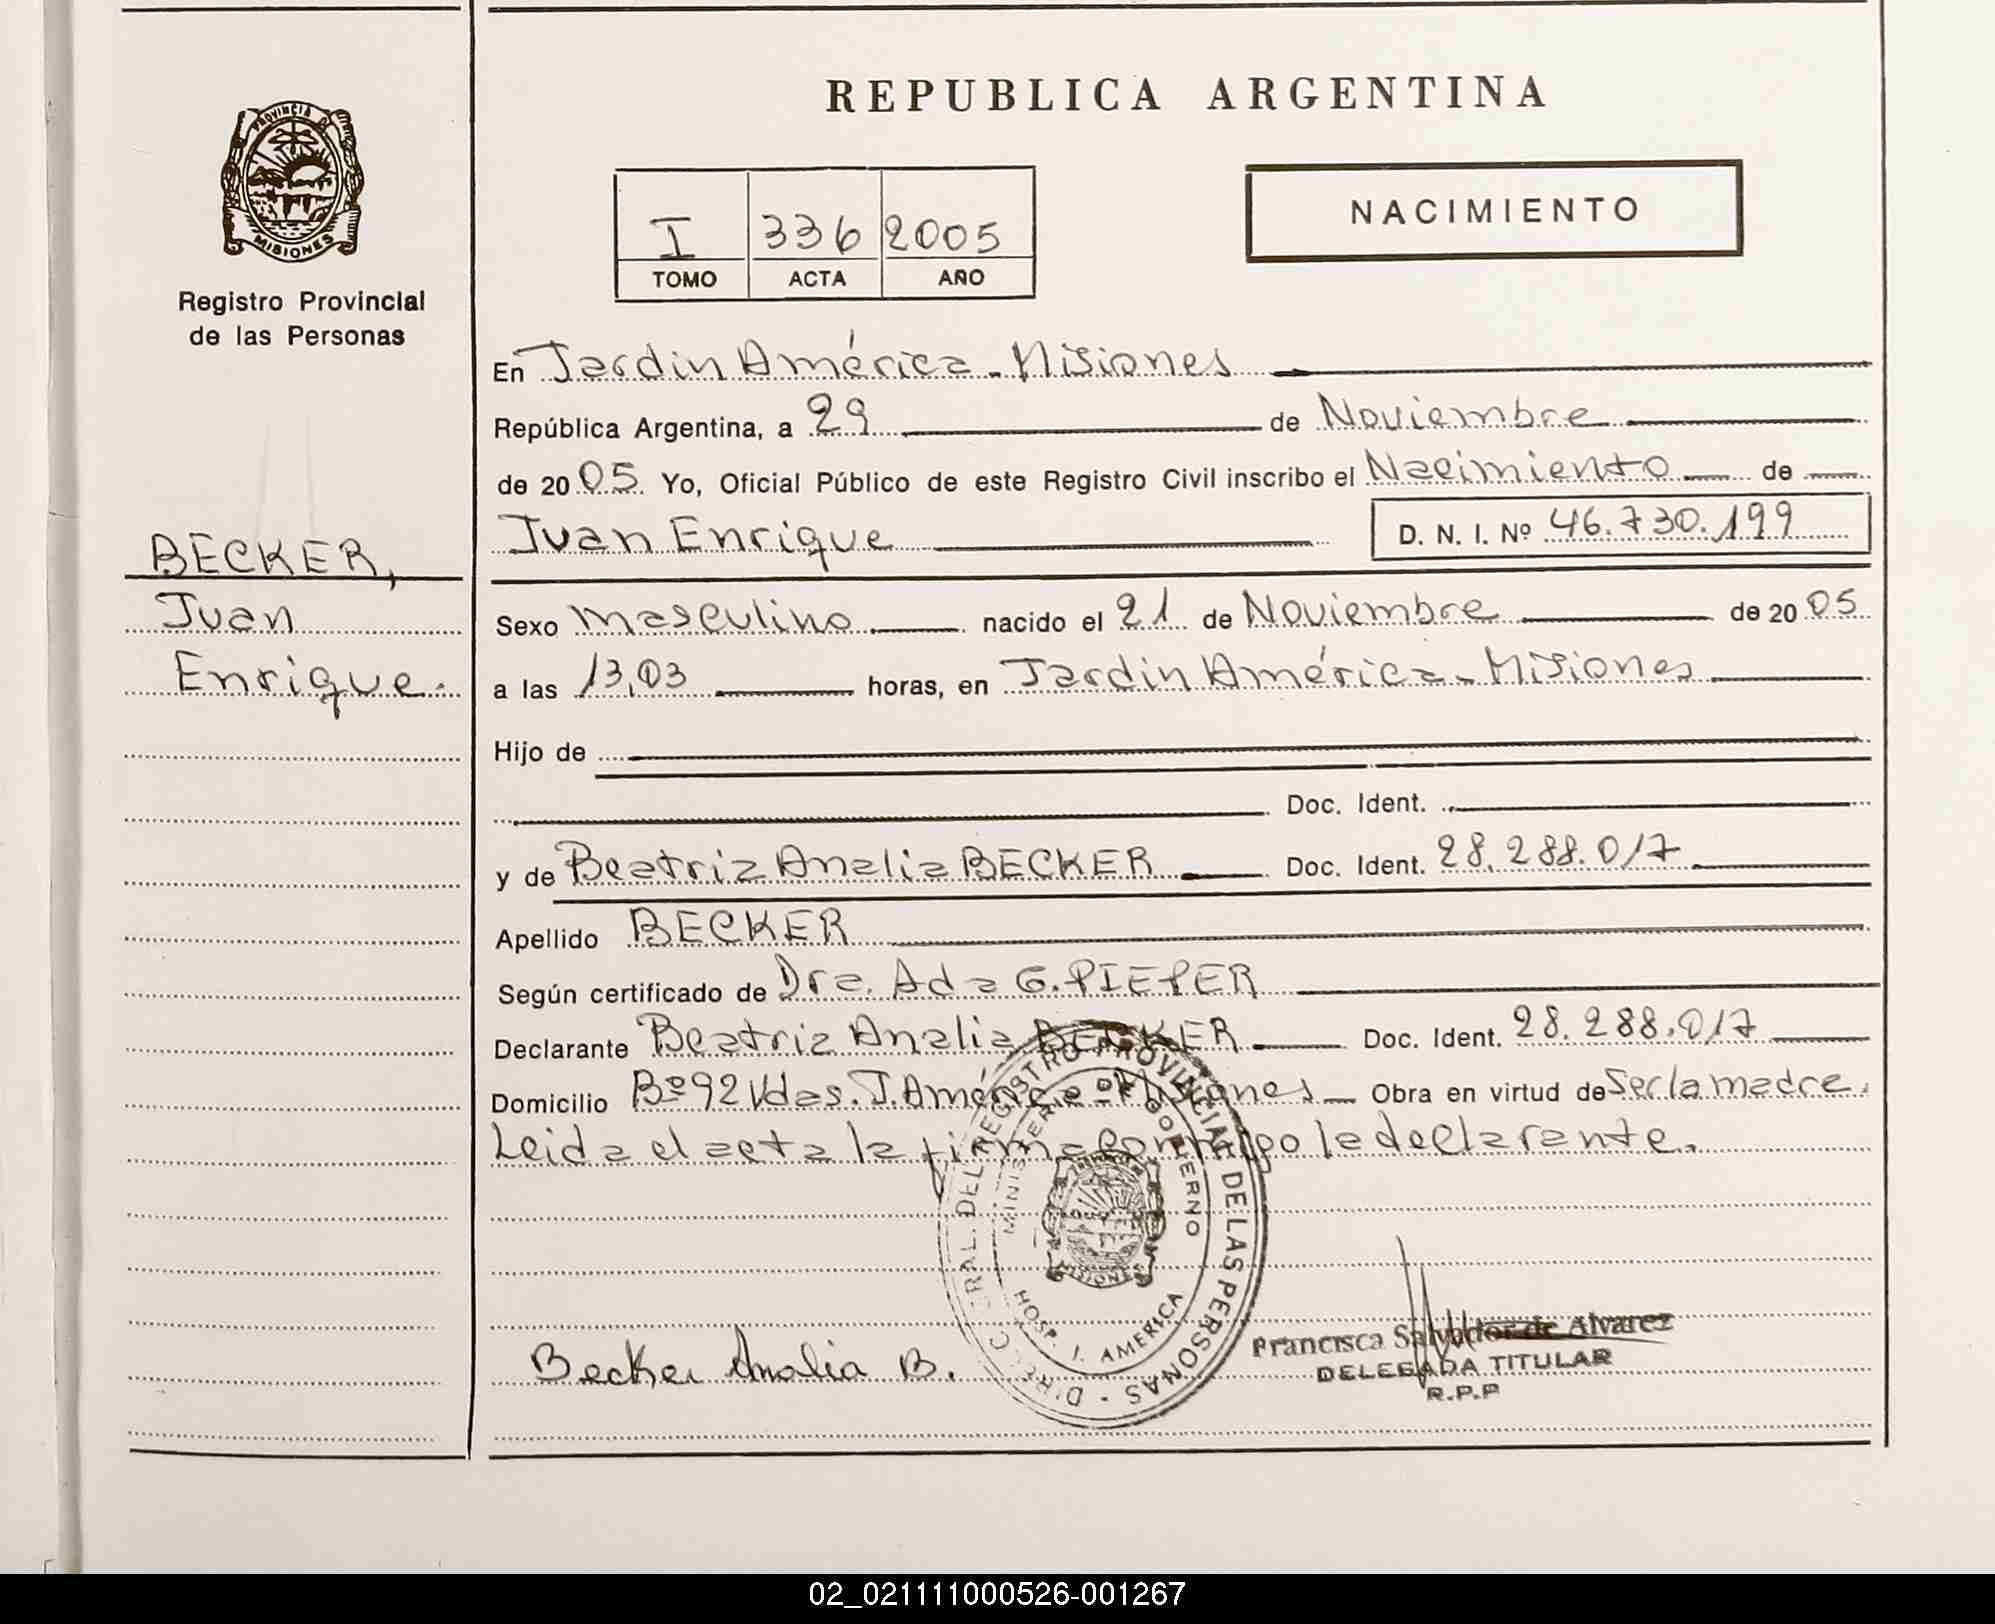 REPUBLICA ARGENTINA
PROVINCIA DE
MISIONES
Registro Provincial
de las Personas
I 336 2005
TOMO ACTA AÑO
NACIMIENTO
En Jardin América - Misiones
República Argentina, a 29 de Noviembre
de 2005. Yo, Oficial Público de este Registro Civil inscribo el Nacimiento de
Juan Enrique D. N. I. Nº 46.730.199
BECKER,
Juan
Enrique.
Sexo masculino nacido el 21 de Noviembre de 2005
a las 13,03 horas, en Jardin América - Misiones
Hijo de
Doc. Ident.
y de Beatriz Analia BECKER Doc. Ident. 28.288.017
Apellido BECKER
Según certificado de Dra. Ada G. PIEPER
Declarante Beatriz Analia BECKER Doc. Ident. 28.288.017
Domicilio Bº 92 Vdas. J. América - Misiones Obra en virtud de Ser la madre.
Leida el acta la firma conmigo la declarante.
REGISTRO PROVINCIAL DE LAS PERSONAS
MINISTERIO DE GOBIERNO
MISIONES
HOSP. J. AMERICA
Becker Analia B.
Francisca Salvador de Alvarez
DELEGADA TITULAR
R.P.P
02_021111000526-001267